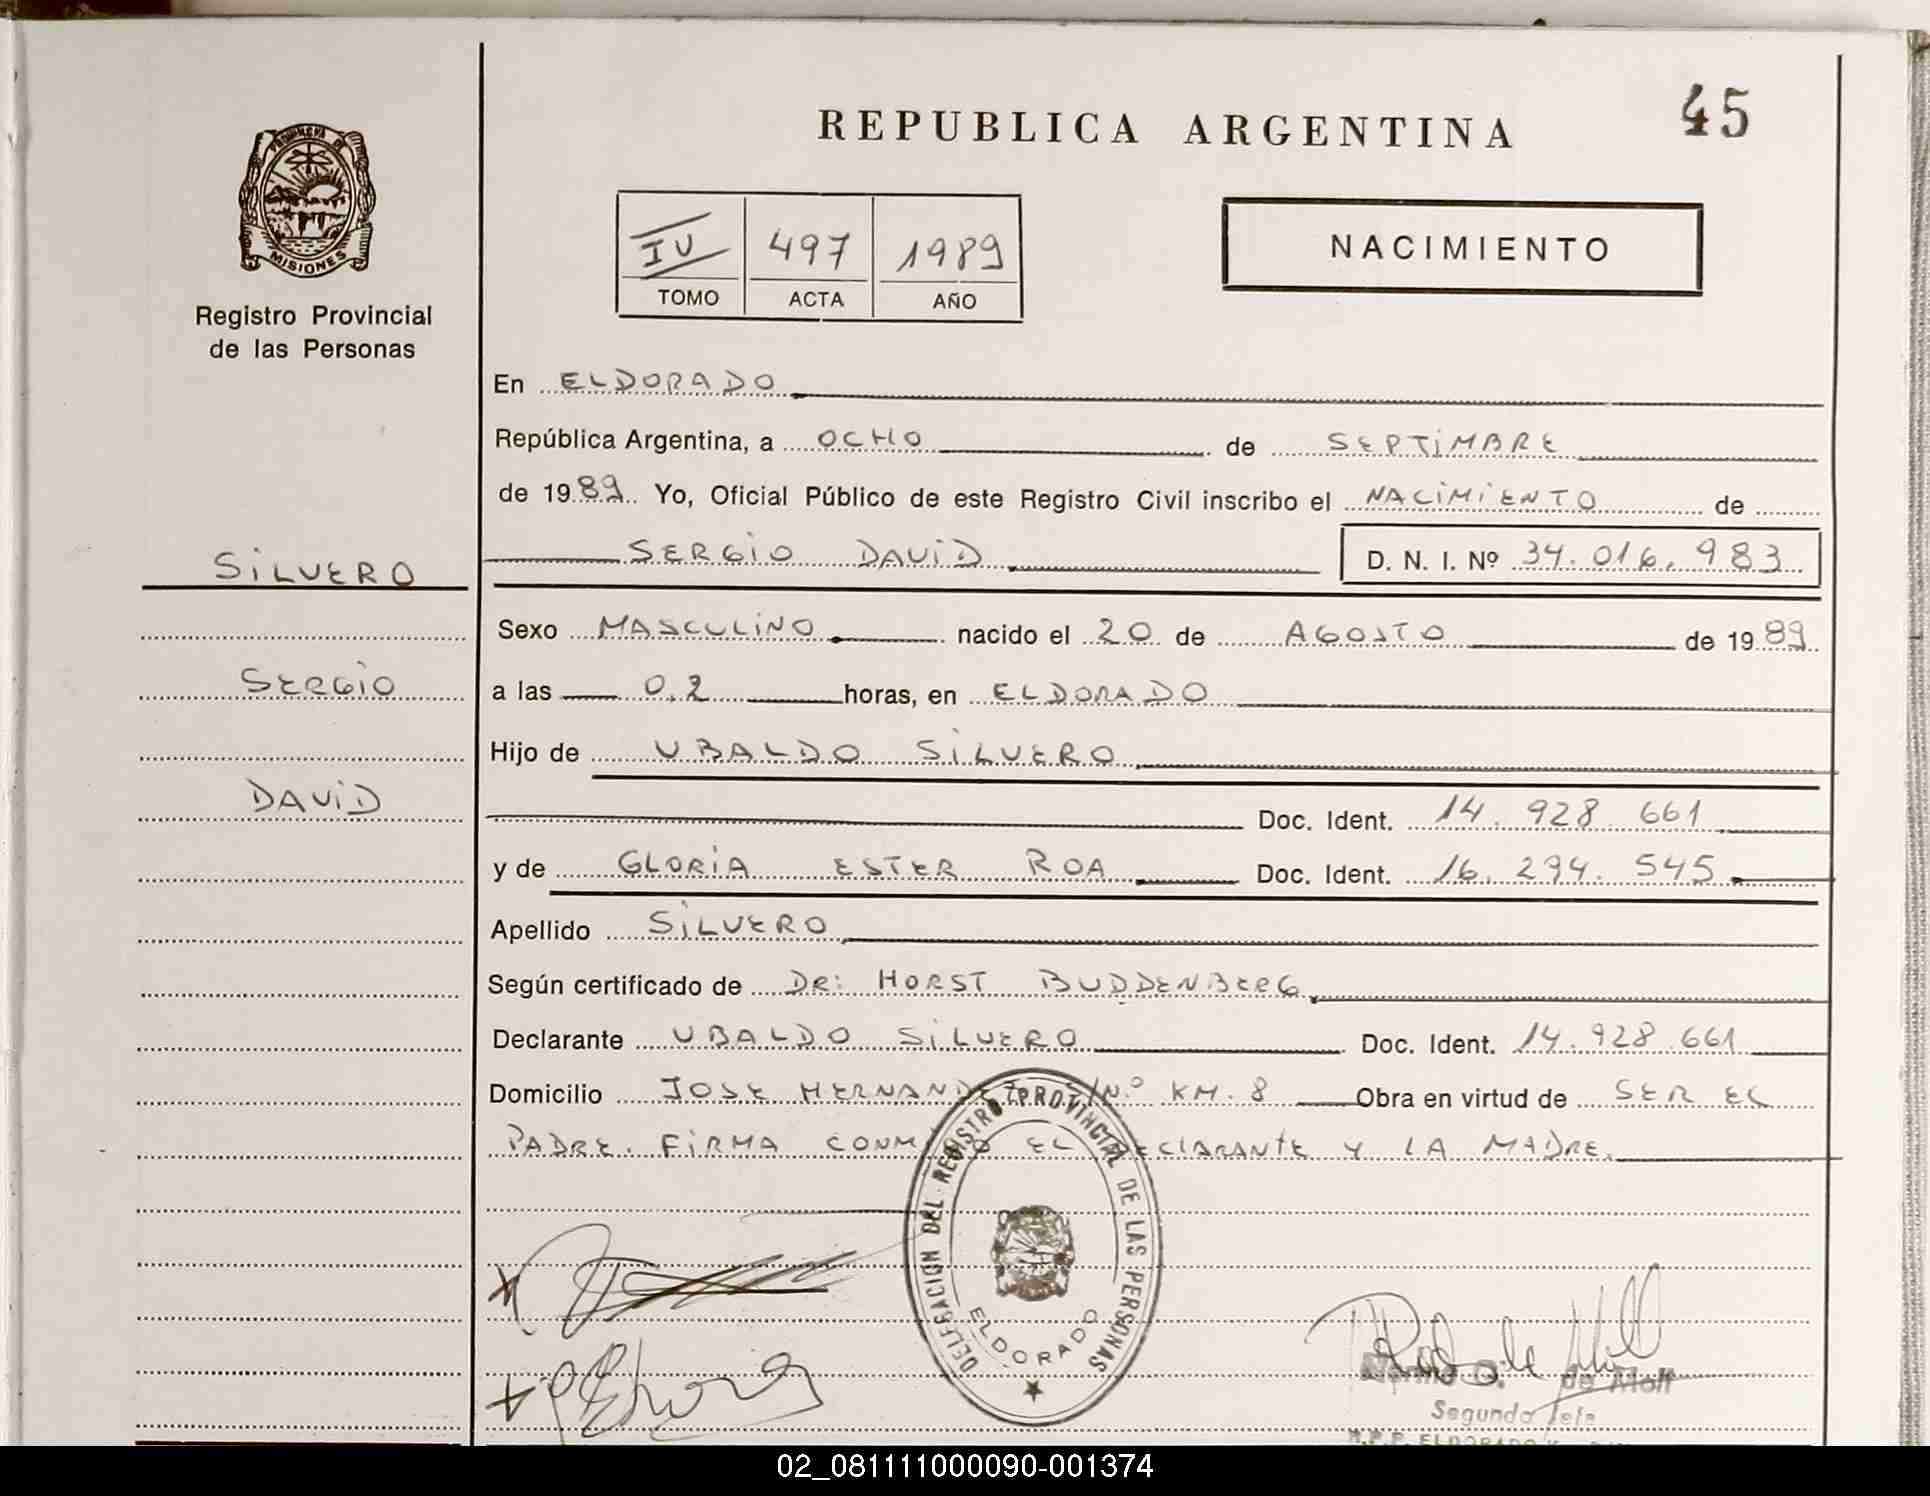 45
REPUBLICA ARGENTINA
PROVINCIA DE
MISIONES
Registro Provincial
de las Personas
IV 497 1989
TOMO ACTA AÑO
NACIMIENTO
En ELDORADO
República Argentina, a OCHO de SEPTIMBRE
de 1989. Yo, Oficial Público de este Registro Civil inscribo el NACIMIENTO de
SERGIO DAVID D. N. I. Nº 34.016.983
SILVERO
SERGIO
DAVID
Sexo MASCULINO nacido el 20 de AGOSTO de 1989
a las 0,2 horas, en ELDORADO
Hijo de UBALDO SILVERO
Doc. Ident. 14.928.661
y de GLORIA ESTER ROA Doc. Ident. 16.294.545
Apellido SILVERO
Según certificado de DR: HORST BUDDENBERG
Declarante UBALDO SILVERO Doc. Ident. 14.928.661
Domicilio JOSE HERNANDEZ S/Nº KM. 8 Obra en virtud de SER EL
PADRE. FIRMA CONMIGO EL DECLARANTE Y LA MADRE.
DELEGACION DEL REGISTRO PROVINCIAL DE LAS PERSONAS
ELDORADO
de Moll
Segundo Jefe
R.P.P. ELDORADO
02_081111000090-001374